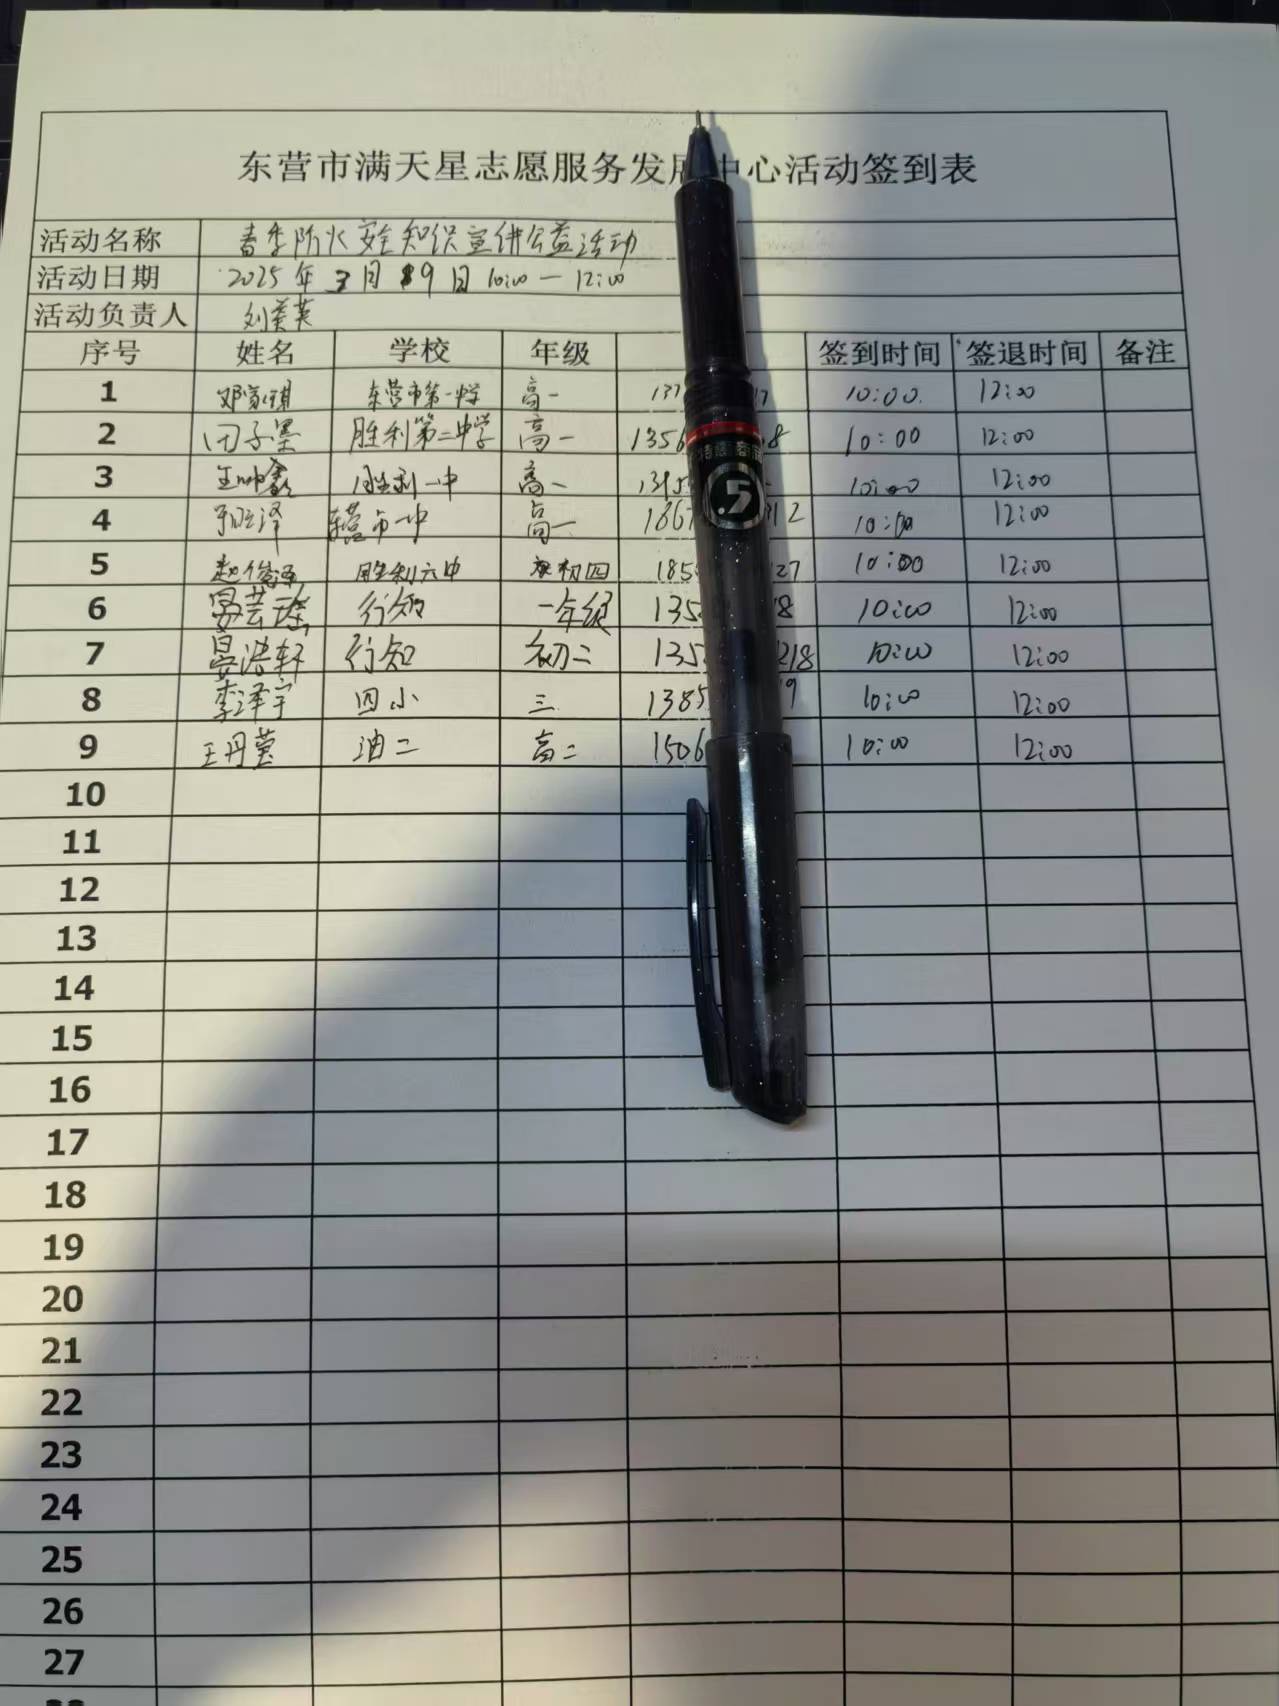 东营市满天星志愿服务发展中心活动签到表
活动名称 春季防火安全知识宣讲公益活动
活动日期 2025年3月9日 10:00—12:00
活动负责人
序号 姓名 学校 年级 签到时间 签退时间 备注
1 东营市第一中学 高一 137 10:00 12:00
2 田子墨 胜利第二中学 高一 1356 8 10:00 12:00
3 胜利一中 高一 10:00 12:00
4 东营市一中 高一 1867 312 10:00 12:00
5 赵俊 胜利六中 初四 185 27 10:00 12:00
6 晏芸 行知 一年级 135 8 10:00 12:00
7 晏浩轩 行知 初二 135 218 10:00 12:00
8 李泽宇 四小 三 1385 9 10:00 12:00
9 王丹莹 油二 高二 1506 10:00 12:00
10
11
12
13
14
15
16
17
18
19
20
21
22
23
24
25
26
27
.5